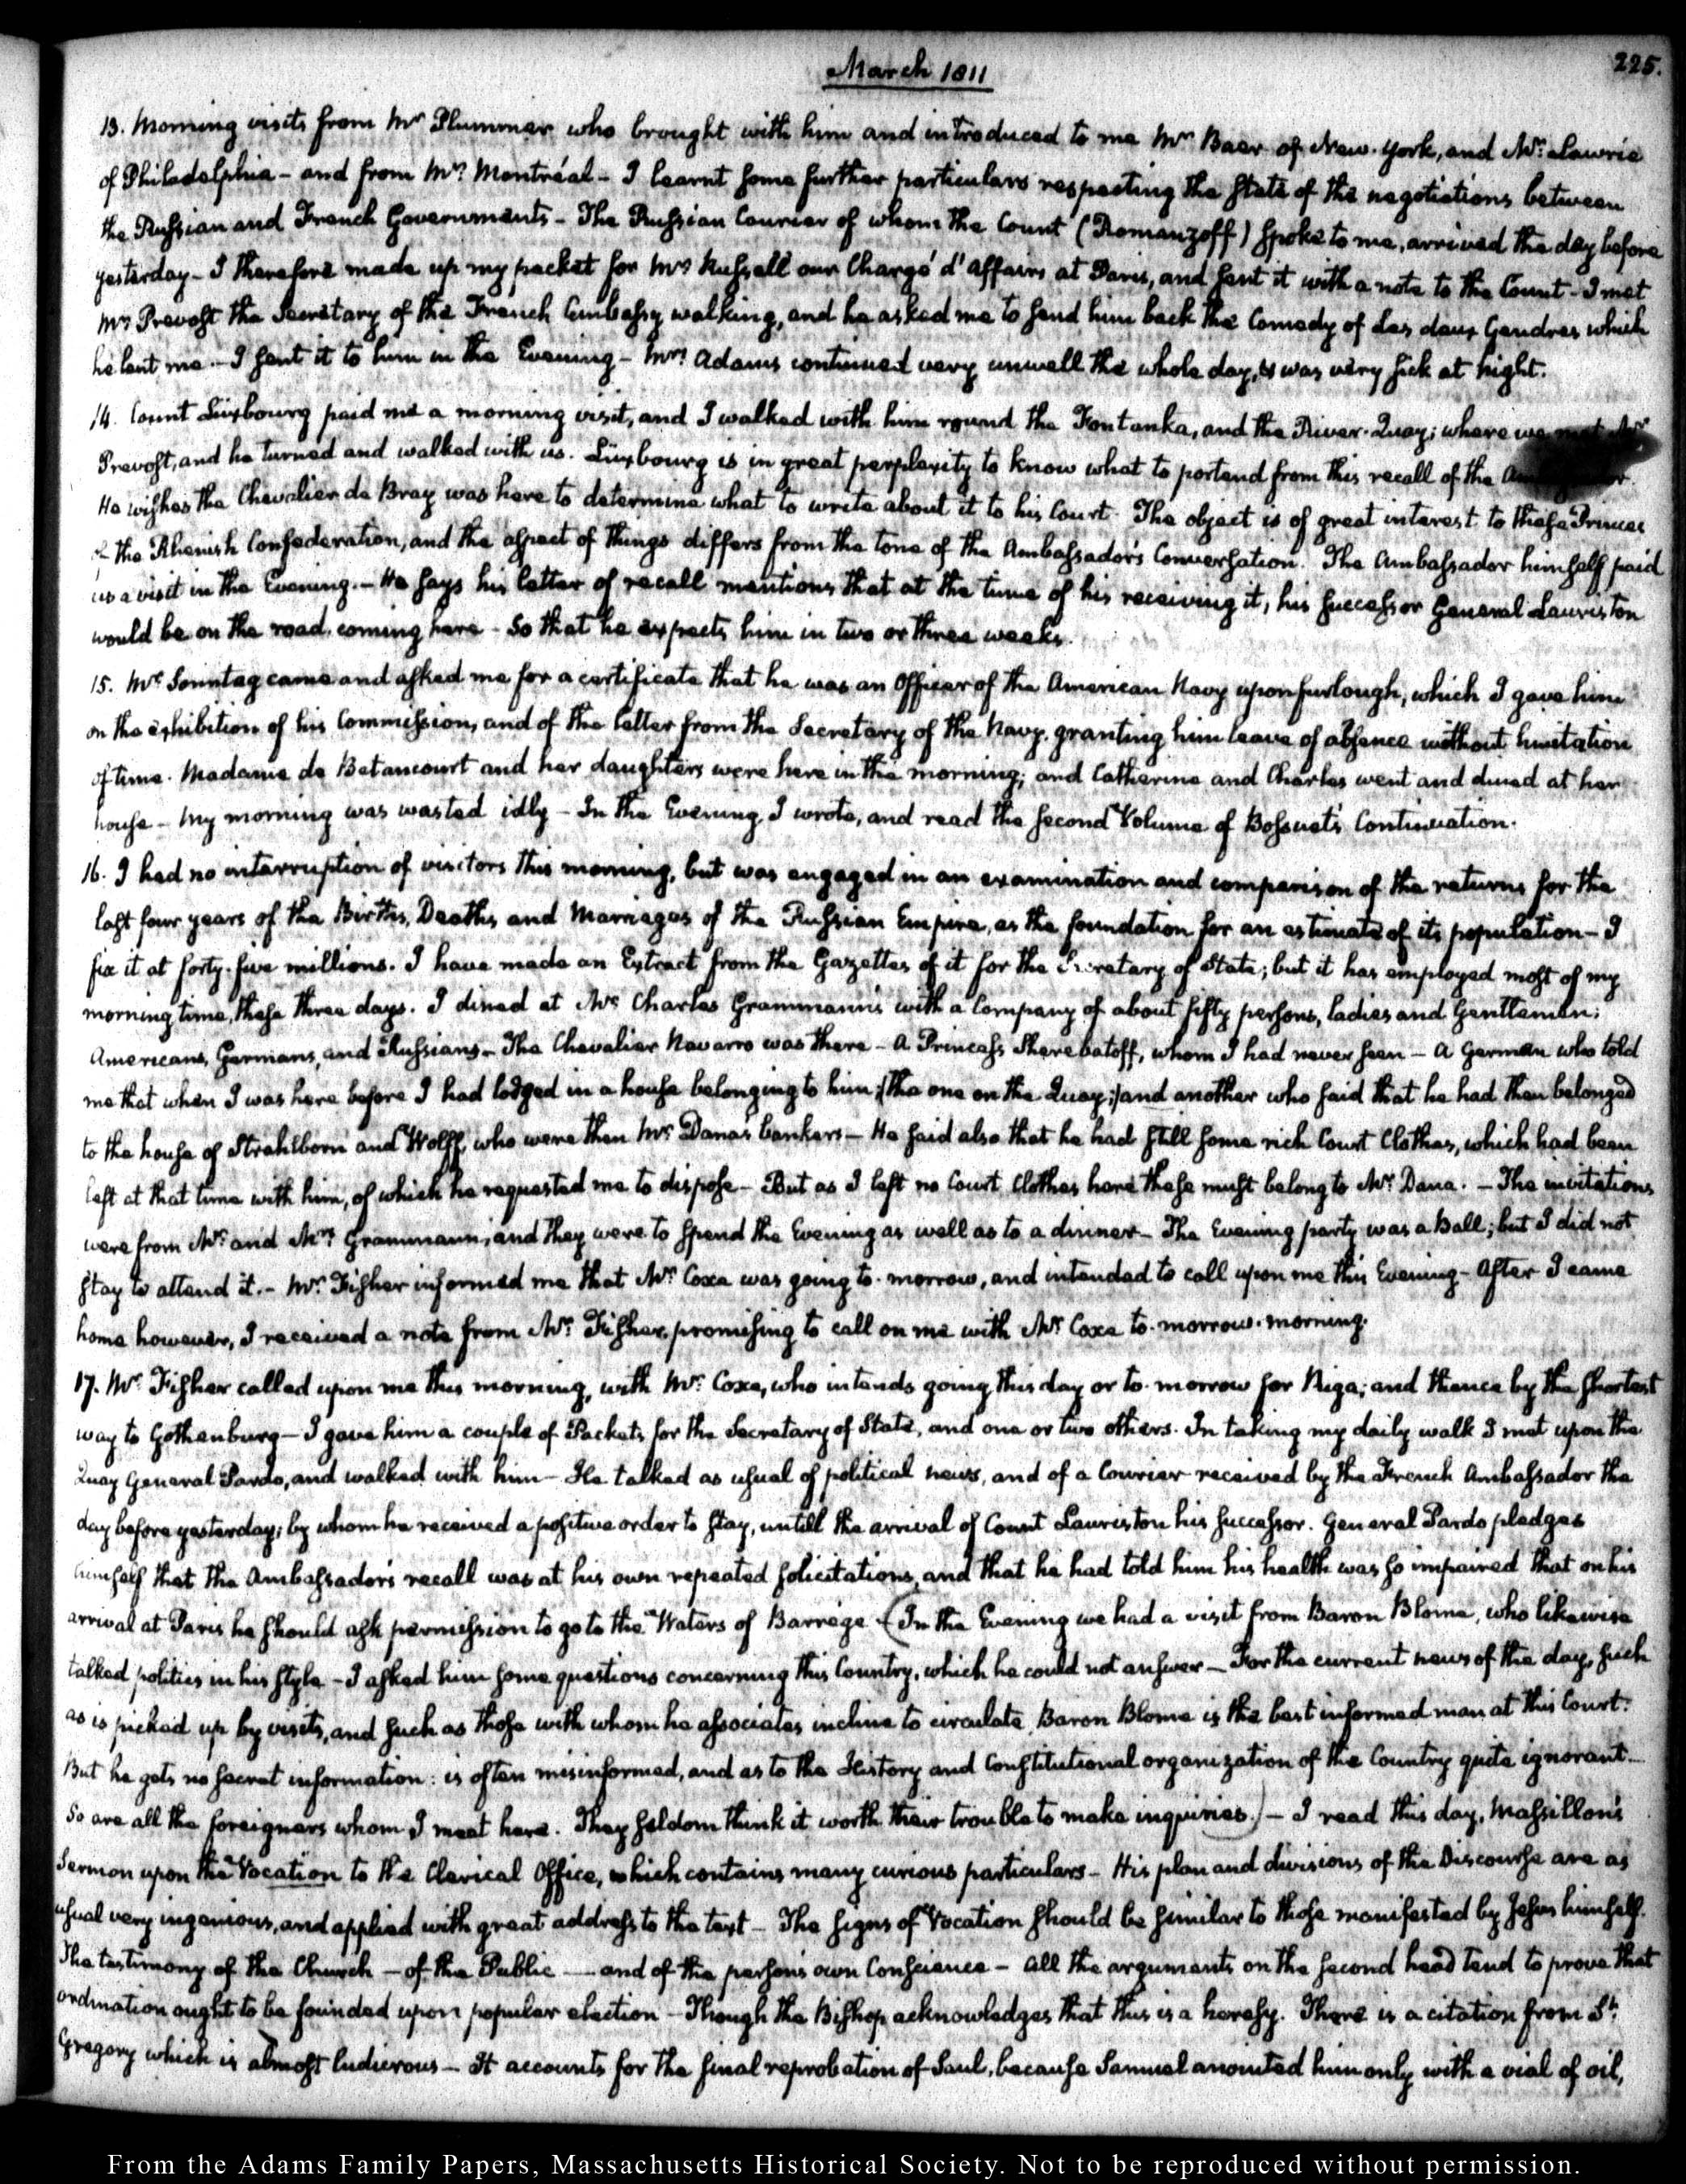 March 1811
225.
13. Morning visits from Mr Plummer who brought with him and introduced to me Mr Baer of New-York, and Mr Lawrie
of Philadelphia – and from Mr Montréal – I learnt some further particulars respecting the state of the negotiations between
the Russian and French Governments – The Russian Courier of whom the Count (Romanzoff) spoke to me, arrived the day before
yesterday – I therefore made up my packet for Mr Russell our Chargé d'Affairs at Paris, and sent it with a note to the Count – I met
Mr Prevost the Secretary of the French Embassy walking, and he asked me to send him back the Comedy of Les deux Gendres which
he lent me – I sent it to him in the Evening – Mrs Adams continued very unwell the whole day, & was very sick at night.
14. Count Luxbourg paid me a morning visit, and I walked with him round the Fontanka, and the River-Quay; where we met Mr
Prevost, and he turned and walked with us. Luxbourg is in great perplexity to know what to portend from this recall of the
He wishes the Chevalier de Bray was here to determine what to write about it to his Court. The object is of great interest to these Princes
of the Rhenish Confederation, and the aspect of things differs from the tone of the Ambassador's Conversation. The Ambassador himself paid
us a visit in the Evening. – He says his letter of recall mentions that at the time of his receiving it, his successor General Lauriston
would be on the road, coming here – So that he expects him in two or three weeks.
15. Mr Sonntag came and asked me for a certificate that he was an Officer of the American Navy upon furlough, which I gave him
on the exhibition of his Commission, and of the letter from the Secretary of the Navy, granting him leave of absence without limitation
of time. Madame de Betancourt and her daughters were here in the morning; and Catherine and Charles went and dined at her
house – My morning was wasted idly – In the Evening, I wrote, and read the second Volume of Bossuet's Continuation.
16. I had no interruption of visitors this morning, but was engaged in an examination and comparison of the returns for the
last four years of the Births, Deaths and Marriages of the Russian Empire, as the foundation for an estimate of its population – I
fix it at forty-five millions. I have made an Extract from the Gazettes of it for the Secretary of State; but it has employed most of my
morning time, these three days. I dined at Mr Charles Grammann's with a Company of about fifty persons, ladies and Gentlemen;
Americans, Germans, and Russians – The Chevalier Navarro was there – A Princess Sherebatoff, whom I had never seen – A German who told
me that when I was here before I had lodged in a house belonging to him; (the one on the Quay;) and another who said that he had then belonged
to the house of Strahlborn and Wolff, who were then Mr Dana's bankers – He said also that he had still some rich Court Clothes, which had been
left at that time with him, of which he requested me to dispose – But as I left no Court Clothes here these must belong to Mr Dana. – The invitations
were from Mr and Mrs Grammann, and they were to spend the Evening as well as to a dinner – The Evening party was a Ball; but I did not
stay to attend it. – Mr Fisher informed me that Mr Coxe was going to-morrow, and intended to call upon me this Evening – After I came
home however, I received a note from Mr Fisher, promising to call on me with Mr Coxe to-morrow-morning.
17. Mr Fisher called upon me this morning, with Mr Coxe, who intends going this day or to-morrow for Riga; and thence by the shortest
way to Gothenburg – I gave him a couple of Packets for the Secretary of State, and one or two others. In taking my daily walk I met upon the
Quay General Pardo, and walked with him – He talked as usual of political news, and of a Courier received by the French Ambassador the
day before yesterday; by whom he received a positive order to stay, untill the arrival of Count Lauriston his successor. General Pardo pledges
himself that the Ambassador's recall was at his own repeated solicitations, and that he had told him his health was so impaired that on his
arrival at Paris he should ask permission to go to the Waters of Barrège (In the Evening we had a visit from Baron Blome, who likewise
talked politics in his style – I asked him some questions concerning this Country, which he could not answer – For the current news of the day, such
as is picked up by visits, and such as those with whom he associates incline to circulate, Baron Blome is the best informed man at this Court:
But he gets no secret information: is often misinformed, and as to the History and Constitutional organization of the Country quite ignorant –
So are all the foreigners whom I meet here. They seldom think it worth their trouble to make inquiries.) – I read this day, Massillon's
Sermon upon the Vocation to the Clerical Office, which contains many curious particulars – His plan and divisions of the Discourse are as
usual very ingenious, and applied with great address to the text – The signs of Vocation should be similar to those manifested by Jesus himself.
The testimony of the Church – of the Public – and of the person's own Conscience – All the arguments on the second head tend to prove that
ordination ought to be founded upon popular election – Though the Bishop acknowledges that this is a heresy. There is a citation from St
Gregory which is almost ludicrous – It accounts for the final reprobation of Saul, because Samuel anointed him only with a vial of oil,
From the Adams Family Papers, Massachusetts Historical Society. Not to be reproduced without permission.